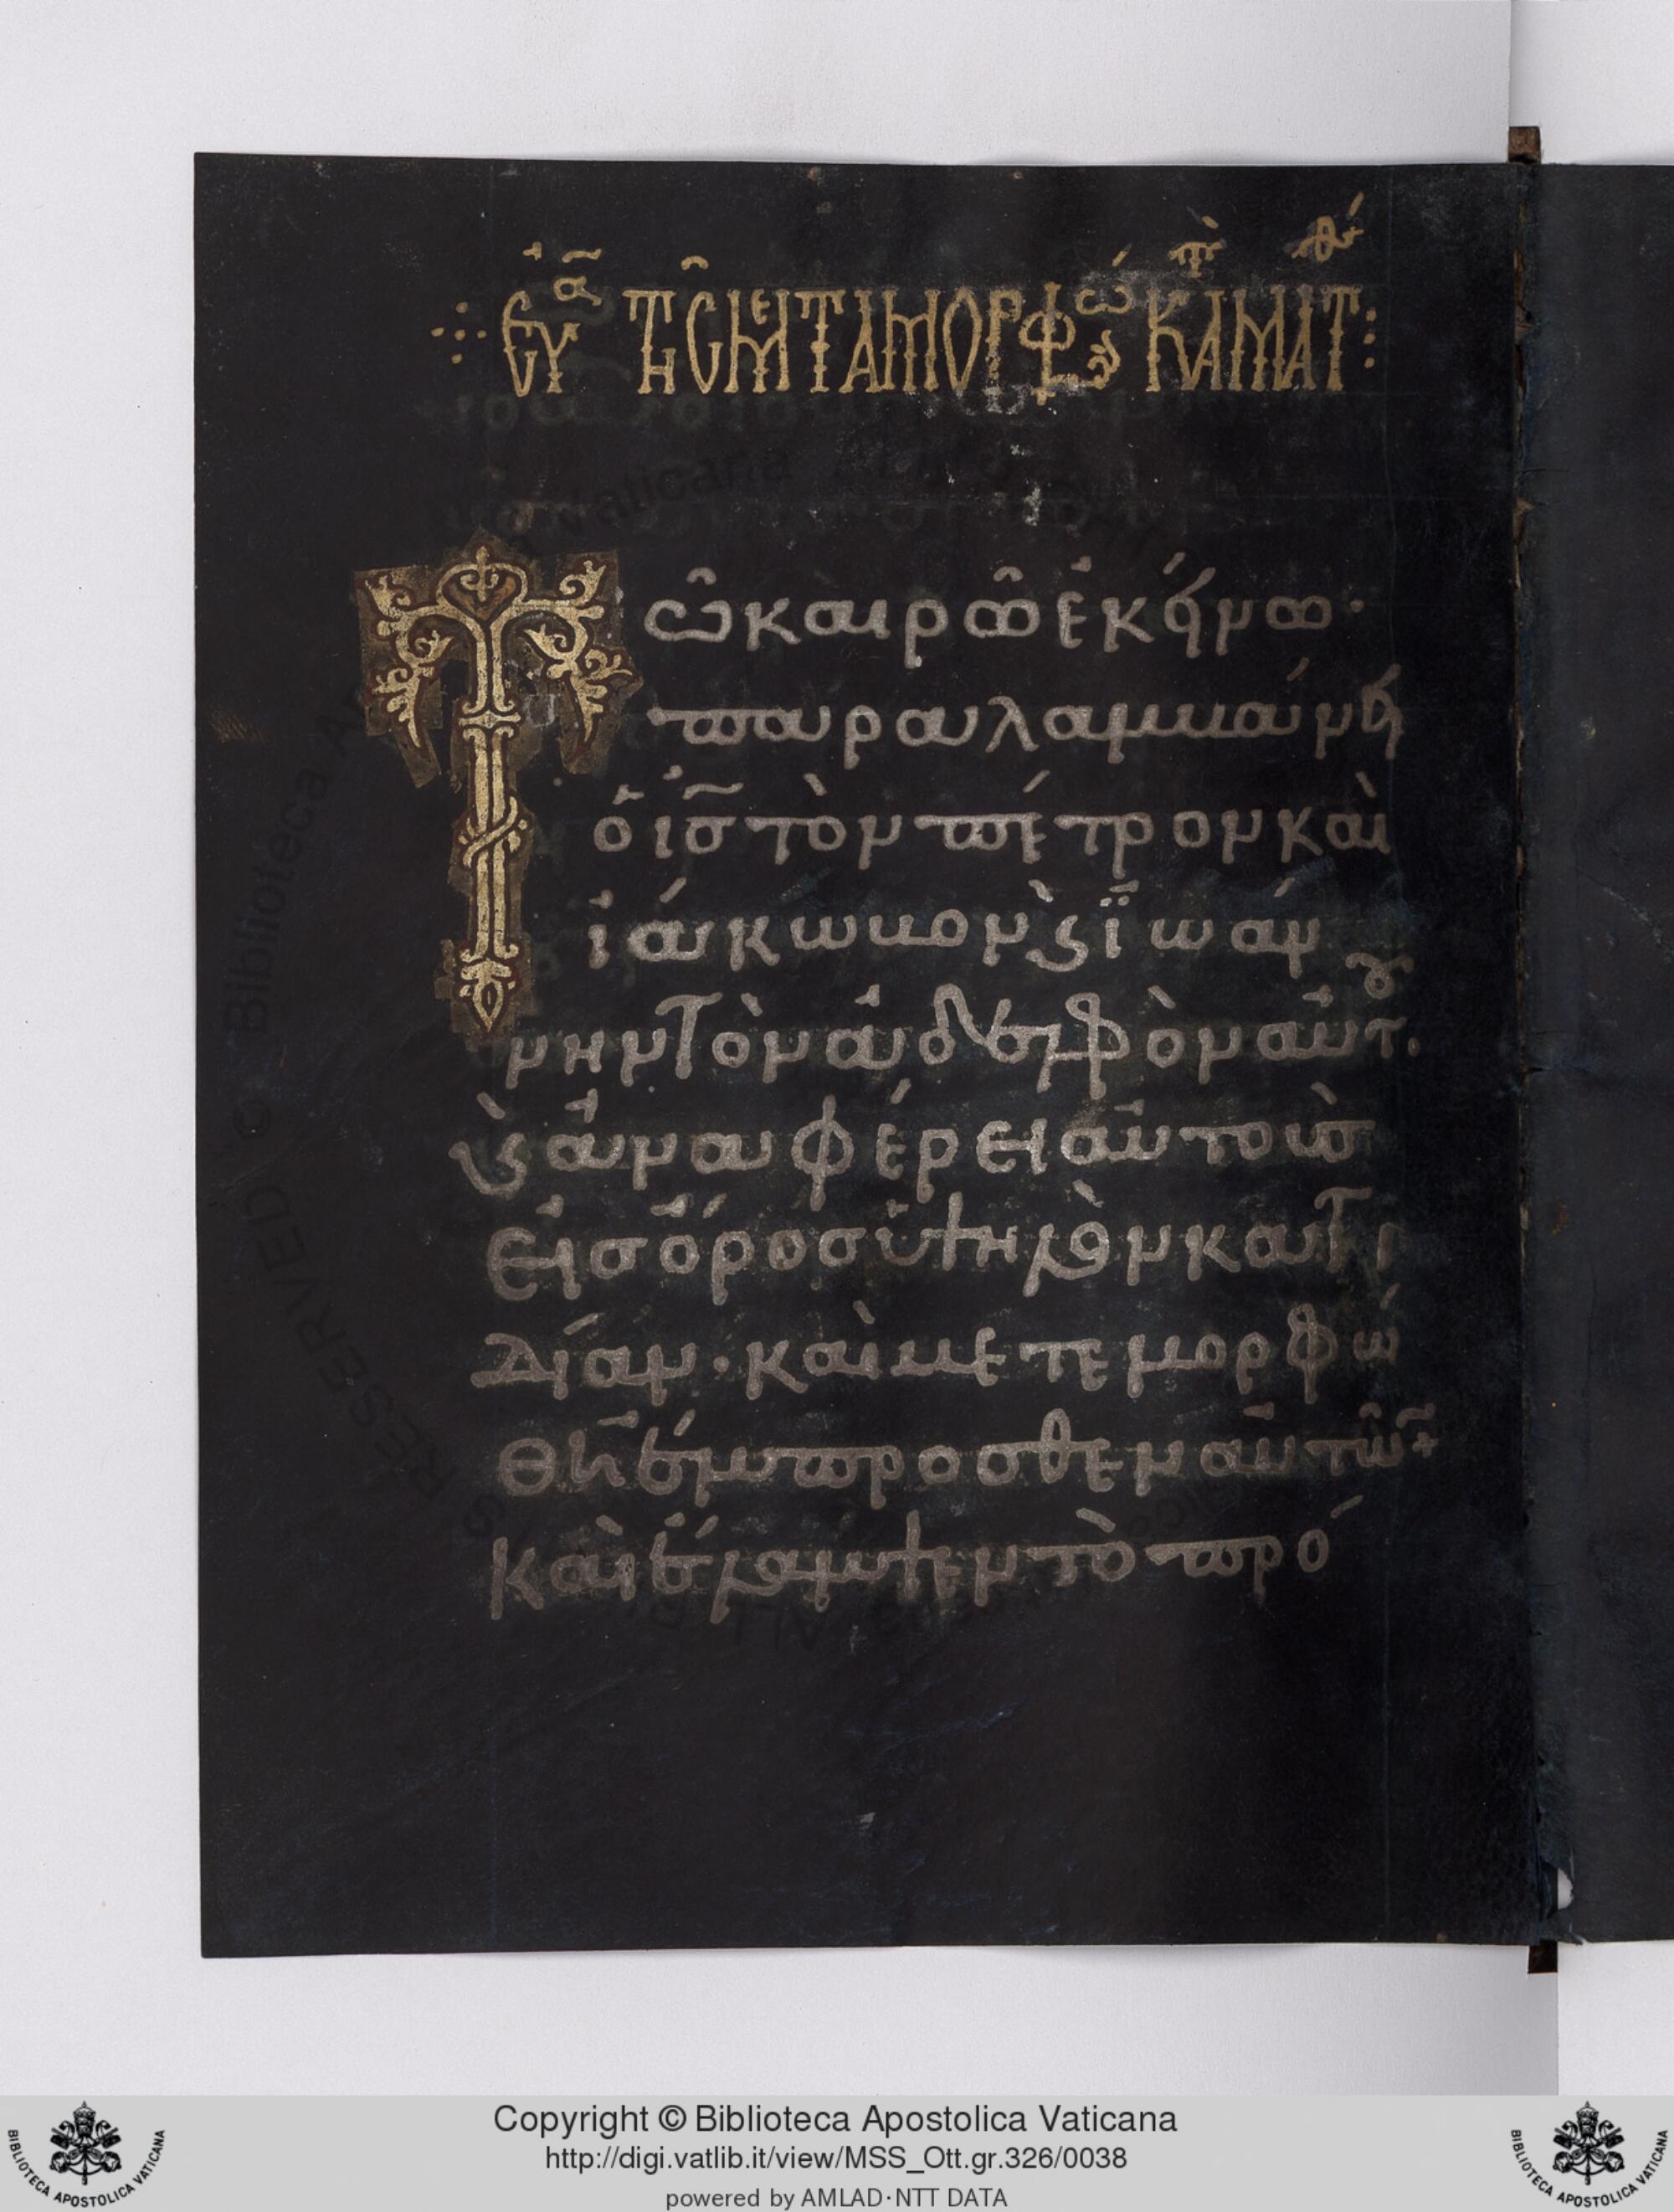 Εὐα τῆς μεταμορφώσ κατὰ Ματθ
Τῶ καιρῶ ἐκείνω·
παραλαμβάνει
ὁ ις τὸν πέτρον καὶ
ἰάκωβον ϗ ϊωάν
νην τὸν ἀδελφὸν αὐτου.
ϗ ἀναφέρει αὐτοὺσ
εἰσ ὄροσ ὑψηλὸν κατι
δίαν· καὶ μετεμορφώ
θη ἔμπροσθεν αὐτῶν+
καὶ ἔλαμψεν τὸ πρό
Copyright © Biblioteca Apostolica Vaticana
http://digi.vatlib.it/view/MSS_Ott.gr.326/0038
powered by AMLAD·NTT DATA
BIBLIOTECA APOSTOLICA VATICANA
BIBLIOTECA APOSTOLICA VATICANA